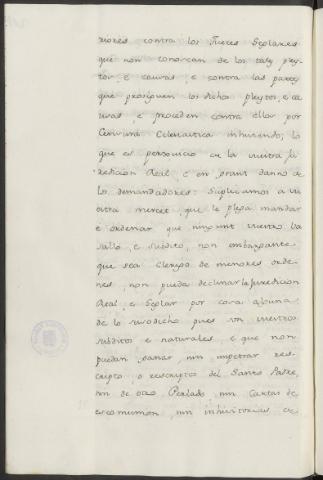 riores contra los Jueces Seglares
que non conoscan de los tales pley-
tos, e causas, e contra las partes
que prosiguen los dichos pleytos, e ca
usas, e proceden contra ellos por
Censura Eclesiastica inhiviendo; lo
que es perjuicio en la vuestra Ju
rediccion Real, e en grant danno de
los demandadores: Suplicamos a vu
estra merced, que le plega mandar
e ordenar que ningunt vuestro va
sallo, e subdito, non embargante
que sea Clerigo de menores orde
nes, non pueda declinar la Jurediccion
Real, e Seglar por cosa alguna
de lo susodicho pues son vuestros
subditos e naturales e que non
puedan ganar, nin impetrar res-
cripto, o rescriptos del Santo Padre,
nin de otro Perlado, nin Cartas de
escomunion, nin inhivitorias en